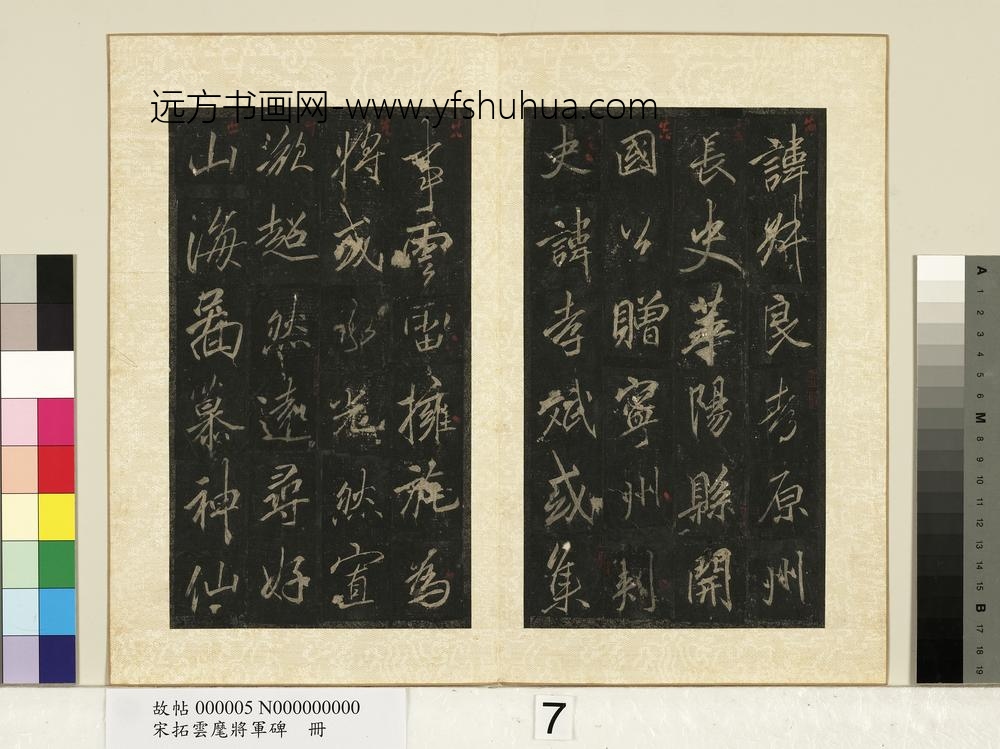 远方书画网-www.yfshuhua.com
諱財良考原州
長史華陽縣開
國公贈寧州刺
史諱孝斌或集
事雲雷擁旄為
將或承光然宦
激超然遠尋好
山海圖慕神仙
故帖 000005 N000000000
宋拓雲麾將軍碑 冊
7
A
1
2
3
4
5
6
M
8
9
10
11
12
13
14
15
B
17
18
19